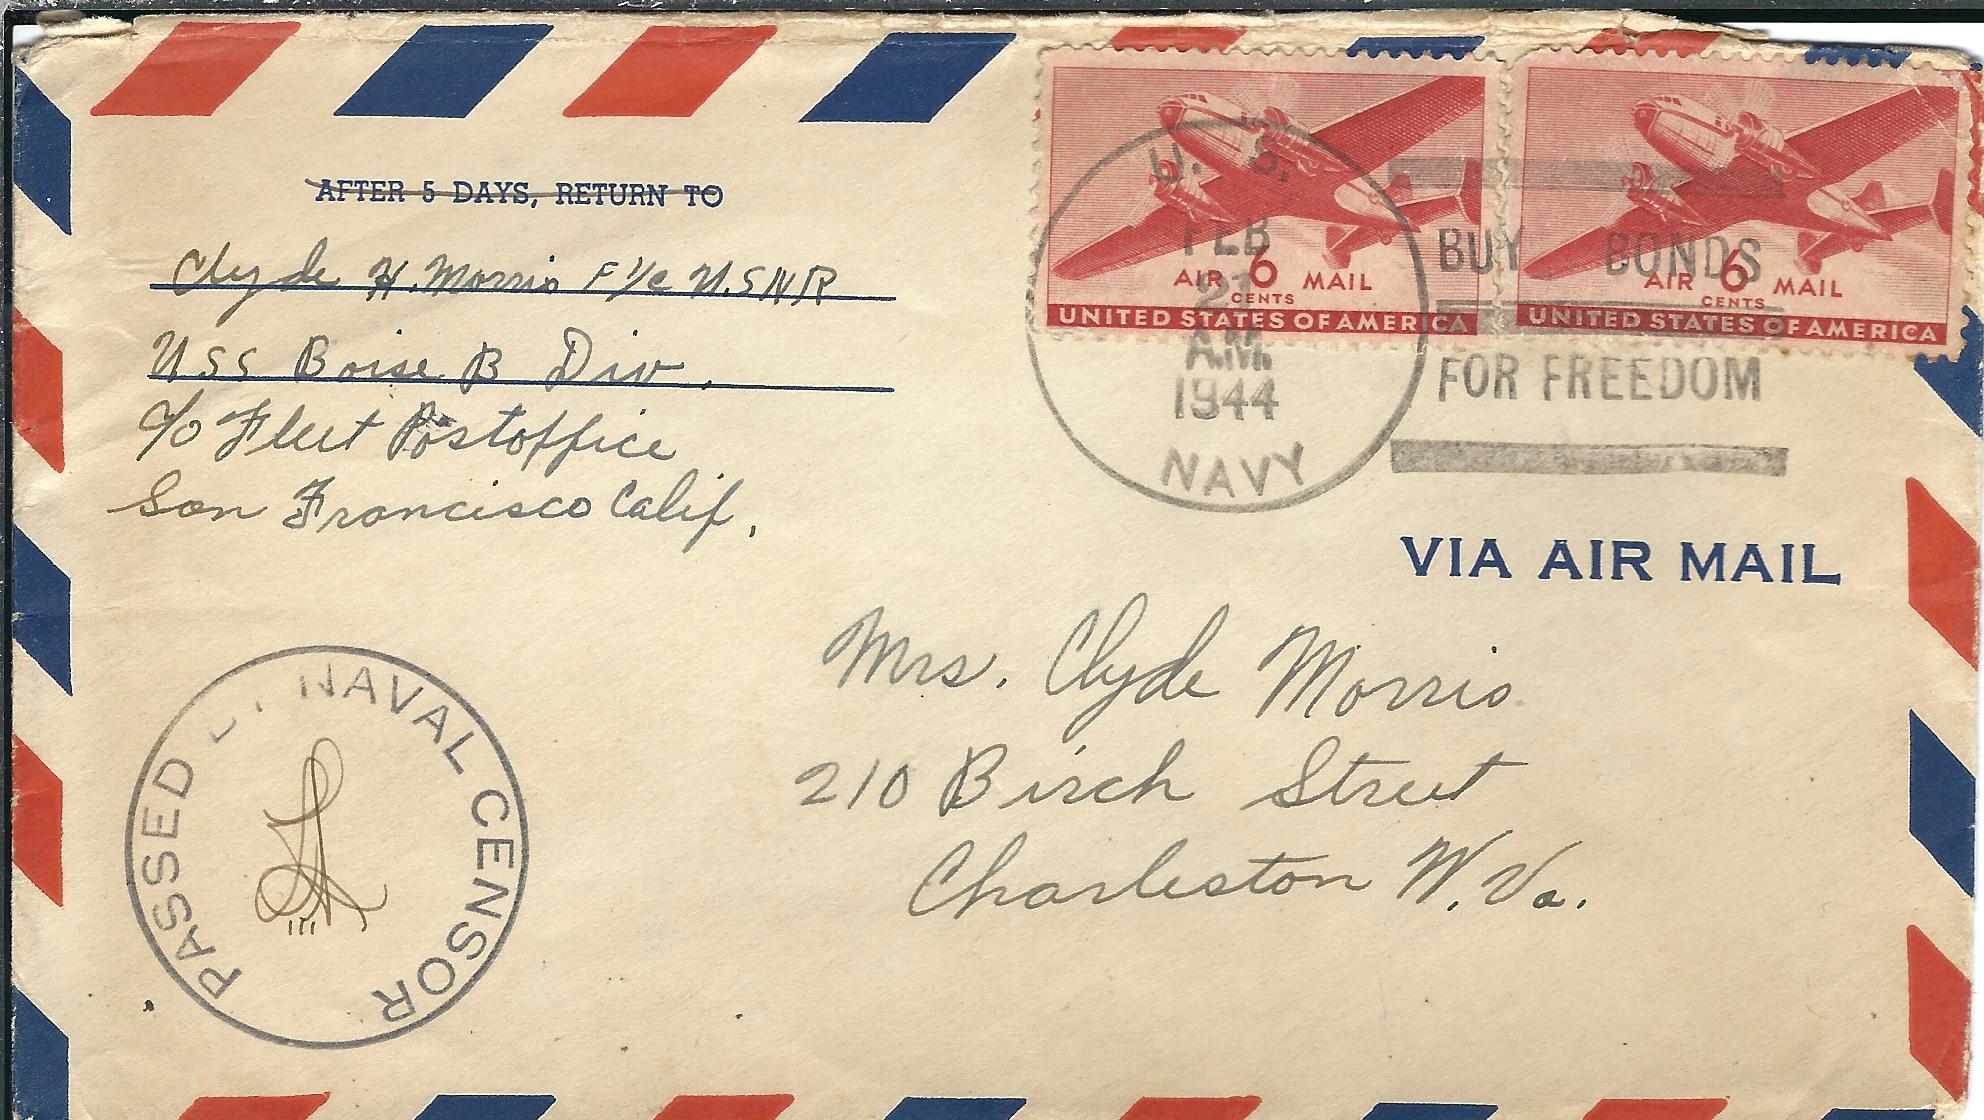 AFTER 5 DAYS, RETURN TO
Clyde H. Morris F 1/c U.S.N.R
USS Boise B Div.
c/o Fleet Postoffice
San Francisco Calif.
AIR 6 MAIL
CENTS
UNITED STATES OF AMERICA
AIR 6 MAIL
CENTS
UNITED STATES OF AMERICA
U. S.
FEB
A.M.
1944
NAVY
BUY BONDS
FOR FREEDOM
VIA AIR MAIL
Mrs. Clyde Morris
210 Birch Street
Charleston W. Va.
PASSED BY NAVAL CENSOR